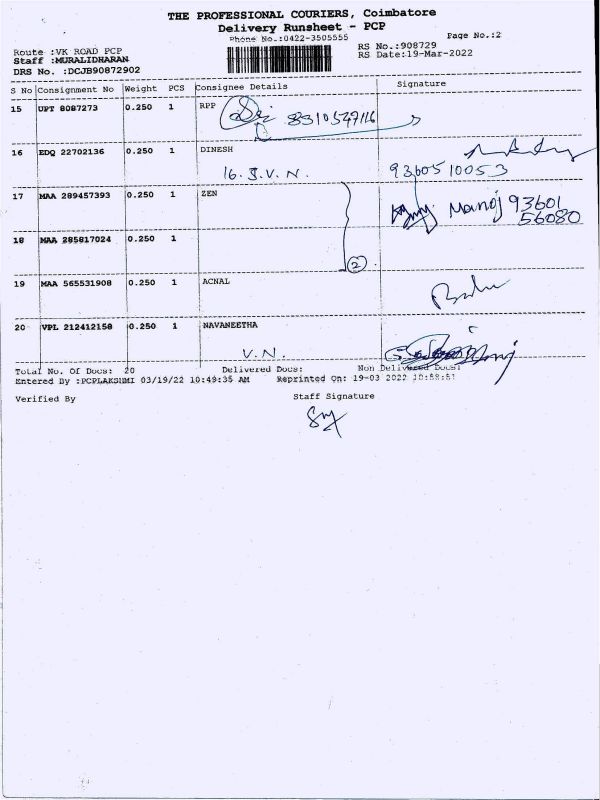 THE PROFESSIONAL COURIERS, Coimbatore
Delivery Runsheet - PCP
Phone No.:0422-3505555
Page No.:2
Route :VK ROAD PCP
RS No.:908729
Staff :MURALIDHARAN
RS Date:19-Mar-2022
DRS No. :DCJB90872902
S No Consignment No Weight PCS Consignee Details Signature
15 UPT 8087273 0.250 1 RPP
8310547116
16 EDQ 22702136 0.250 1 DINESH
16. J.V.N. 9360510053
17 MAA 289457393 0.250 1 ZEN
Manoj 93601
56080
18 MAA 285817024 0.250 1
2
19 MAA 565531908 0.250 1 ACNAL
Babu
20 VPL 212412158 0.250 1 NAVANEETHA
V.N.
Total No. Of Docs: 20 Delivered Docs: Non Delivered Docs:
Entered By :PCPLAKSHMI 03/19/22 10:49:35 AM Reprinted On: 19-03 2022 10:58:51
Verified By Staff Signature